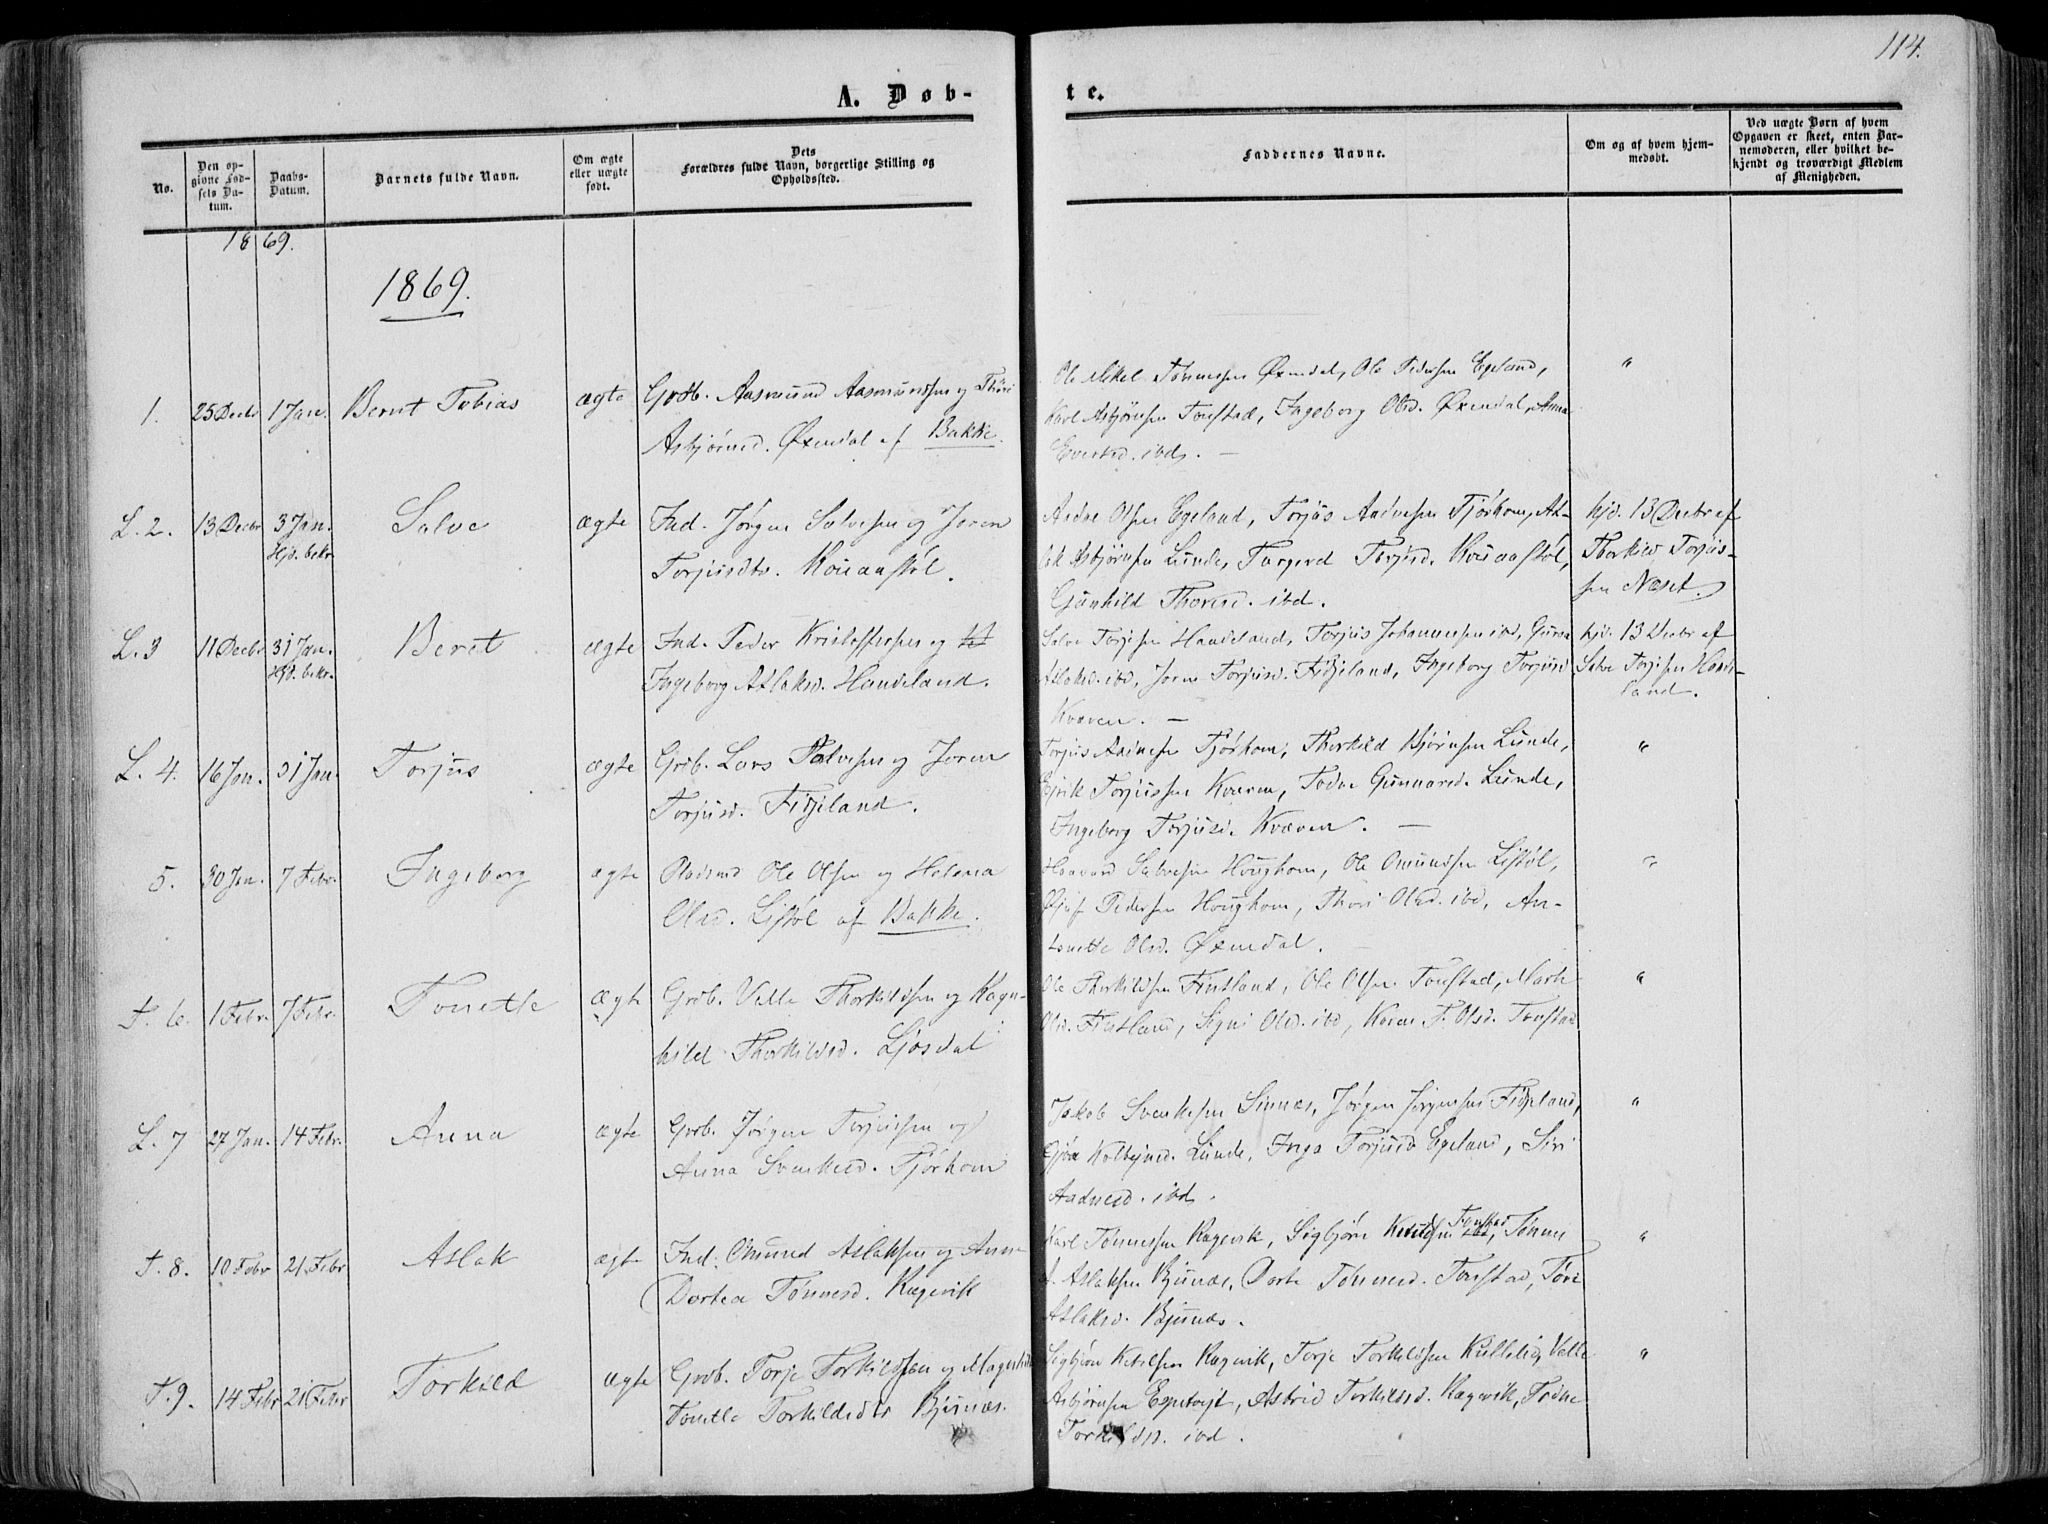 114.
A. Døb-
te.
No.
Den op-
givne Fød-
sels Da-
tum.
Daabs-
Datum.
Barnets fulde Navn.
Om ægte
eller uægte
født.
Dets
Forældres fulde Navn, borgerlige Stilling og
Opholdssted.
Faddernes Navne.
Om og af hvem hjem-
medøbt.
Ved uægte Børn af hvem
Opgaven er skeet, enten Bar-
nemoderen, eller hvilket be-
kjendt og troværdigt Medlem
af Menigheden.
1869.
1869.
1. 25 Decbr 1 Jan. Bernt Tobias ægte Grdb. Aasmund Aasmundsen og Thöri
Asbjörnsd. Øxendal af Bakke.
Ole Mikel Tönnessen Øxendal, Ole Pedersen Egeland,
Karl Asbjörnsen Tonstad, Ingeborg Olsd. Øxendal, Anna
Evertsd. ibd. —
"
L. 2. 13 Decbr 3 Jan. Salve ægte Ind. Jörgen Salvesen og Joren
Hjd. bekr.
Torjusdtr.
Olsen Egeland, Torjus Aadnesen Tjörhom, As-
lak Asbjörnsen Lunde, Torgerd Torjusd.
Gunhild Thoresd. ibd.
hjd. 13 Decbr af
Thorkild Torjus-
sen Næset.
L. 3 11 Decbr 31 Jan. Beret ægte Ind. Peder Kristoffersen og
Hjd. bekr.
Ingeborg Aslaksd. Haudeland.
Salve Torjusen Haudeland, Torjus Johannesen ibd, Guroe
Aslaksd. ibd, Joren Torjusd. Fidjeland, Ingeborg Torjusd
Kvæven. —
hjd. 13 Decbr af
Salve Torjusen Haude-
land.
L. 4. 16 Jan. 31 Jan. Torjus ægte Grdb. Lars Salvesen og Joren
Torjusd. Fidjeland.
Torjus Aadnesen Tjörhom, Thorkild Björnsen Lunde,
Eirik Torjussen Kvæven, Todne Gunnarsd. Lunde,
Ingeborg Torjusd. Kvæven. —
"
5. 30 Jan. 7 Febr. Ingeborg ægte Pladsmd Ole Olsen og Helena
Olsd. Listöl af Bakke.
Haavard Salvesen Houghom, Ole Omundsen Listöl,
Pedersen Houghom, Thöri Olsd. ibd, An-
tonette Olsd. Øxendal. —
"
T. 6. 1 Febr. 7 Febr. Tonette ægte Grdb. Velle Thorkildsen og Ragn-
hild Thorkildsd. Ljosdal
Ole Thorkildsen Fintland, Ole Olsen Tonstad, Marte
Olsd. Fintland, Signi Olsd. ibd, Karen T. Olsd. Tonstad
"
L. 7 27 Jan. 14 Febr. Anna ægte Grdb. Jörgen Torjussen og
Anna Svenkesd. Tjörhom
Jakob Svenkesen Sinnæs, Jörgen Jörgensen Fidjeland,
Gjöa Kolbejnsd. Lunde, Inga Torjusd Egeland, Siri
Aadnesd. ibd.
"
T. 8. 10 Febr 21. Febr Aslak ægte Ind. Omund Aslaksen og Anne
Dortea Tönnesd. Rægevik
Karl Tönnessen Rægevik, Sigbjörn Ketilsen Tonstad, Tönnes
A. Aslaksen Bjunæs, Dorte Tönnesd. Tonstad, Töri
Aslaksd. Bjunæs.
"
T. 9. 14 Febr 21 Febr Torkild ægte Grdb. Torje Torkildsen og
Tonette Torkildsdtr Bjunæs.
Sigbjörn Ketilsen Rægevik, Torje Torkildsen Kullelid, Velle
Asbjörnsen Espetvejt, Astrid Torkildsd. Rægevik, Trine
Torkildsd. ibd.
"